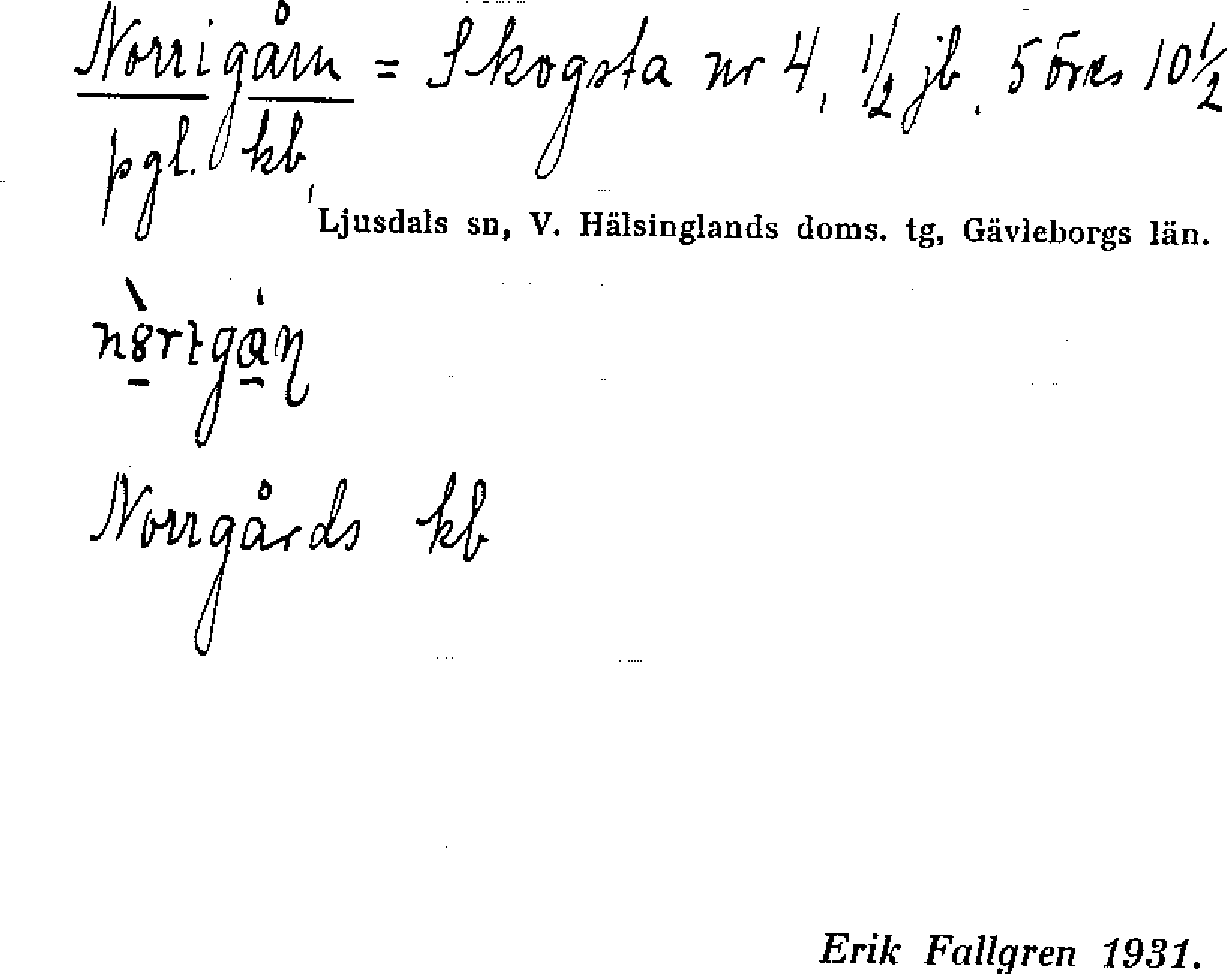 Norrigårn = Skogsta nr 4, 1/2 jb. 5 öres 10 1/2
pgl. kb,
Ljusdals sn, V. Hälsinglands doms. tg, Gävleborgs län.
Norrgårds kb
Erik Fallgren 1931.